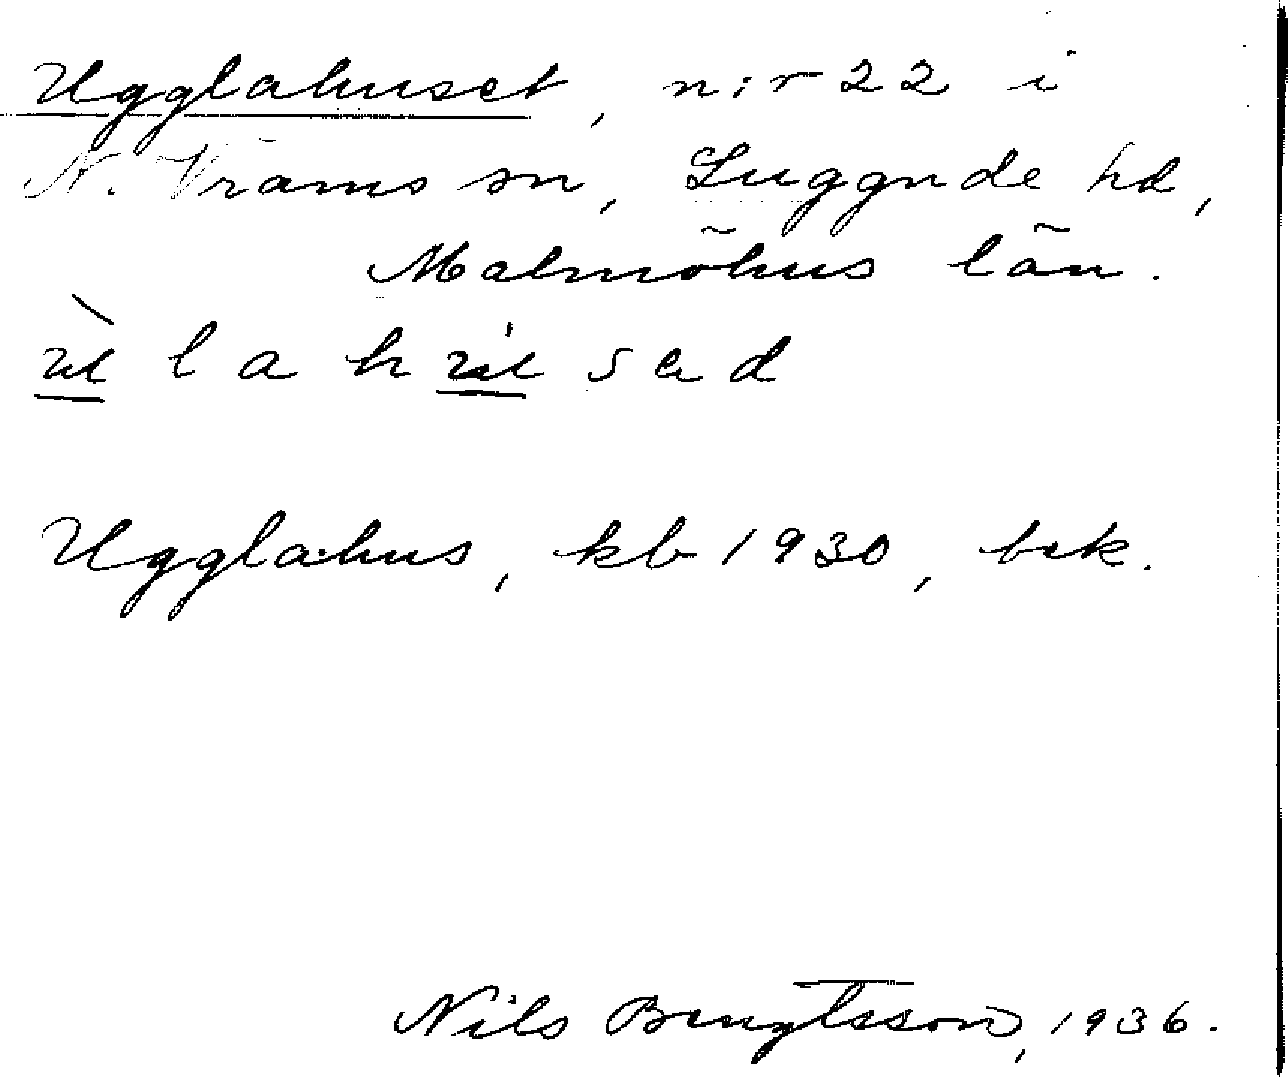 Ugglahuset, n:r 22 i
N. Vrams sn, Luggude hd,
Malmöhus län.
l a h s a d
Ugglahus, kb 1930, bek.
Nils Bengtsson, 1936.